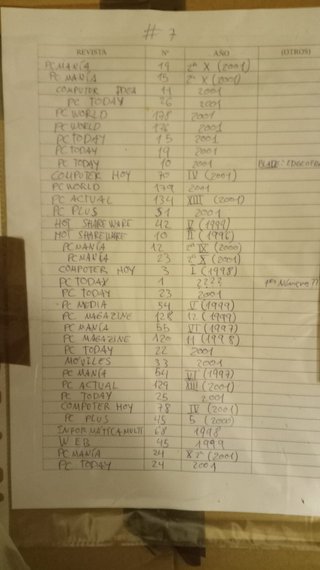 # 7
REVISTA Nº AÑO (OTROS)
PCMANÍA 19 2ª X (2001)
PC MANÍA 15 2ª X (2001)
COMPUTER IDEA 11 2001
PC TODAY 26 2001
PC WORLD 178 2001
PC WORLD 176 2001
PC TODAY 15 2001
PC TODAY 19 2001
PC TODAY 10 2001
COMPUTER HOY 70 IV (2001)
PC WORLD 179 2001
PC ACTUAL 134 XIII (2001)
PC PLUS 51 2001
HOT SHAREWARE 42 V (1999)
HOT SHAREWARE 10 II (1996)
PCMANÍA 12 2ª IX (2000)
PCMANÍA 23 2ª X (2001)
COMPUTER HOY 3 I (1998)
PC TODAY 1 ???? 1er NÚMERO??
PC TODAY 23 2001
PC MEDIA 54 V (1999)
PC MAGAZINE 128 12 (1999)
PC MANÍA 55 VI (1997)
PC MAGAZINE 120 11 (1998)
PC TODAY 22 2001
MÓVILES 33 2001
PC MANÍA 54 VI (1997)
PC ACTUAL 129 XIII (2001)
PC TODAY 25 2001
COMPUTER HOY 78 IV (2001)
PC PLUS 45 5 (2000)
INFORMÁTICA MULTI 68 1998
WEB 95 1999
PCMANÍA 24 X 2ª (2001)
PC TODAY 24 2001